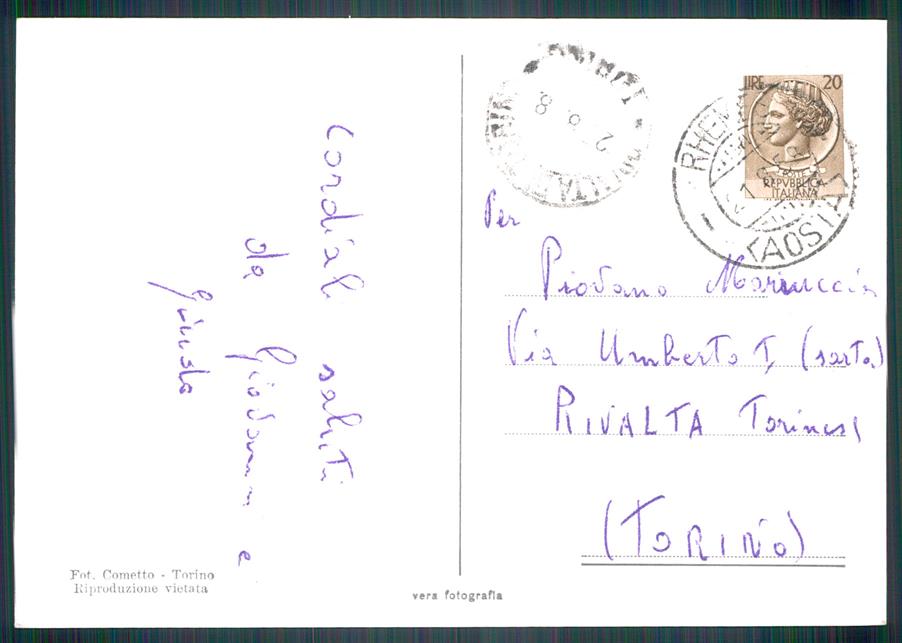 Cordiali saluti
da Giovanni e
Guido
Fot. Cometto - Torino
Riproduzione vietata
vera fotografia
2 6 8
LIRE 20
REPVBBLICA
ITALIANA
RHEM
(AOSTA)
Per
Piovano Mariuccia
Via Umberto I, (sarta)
RIVALTA Torinese
(TORINO)